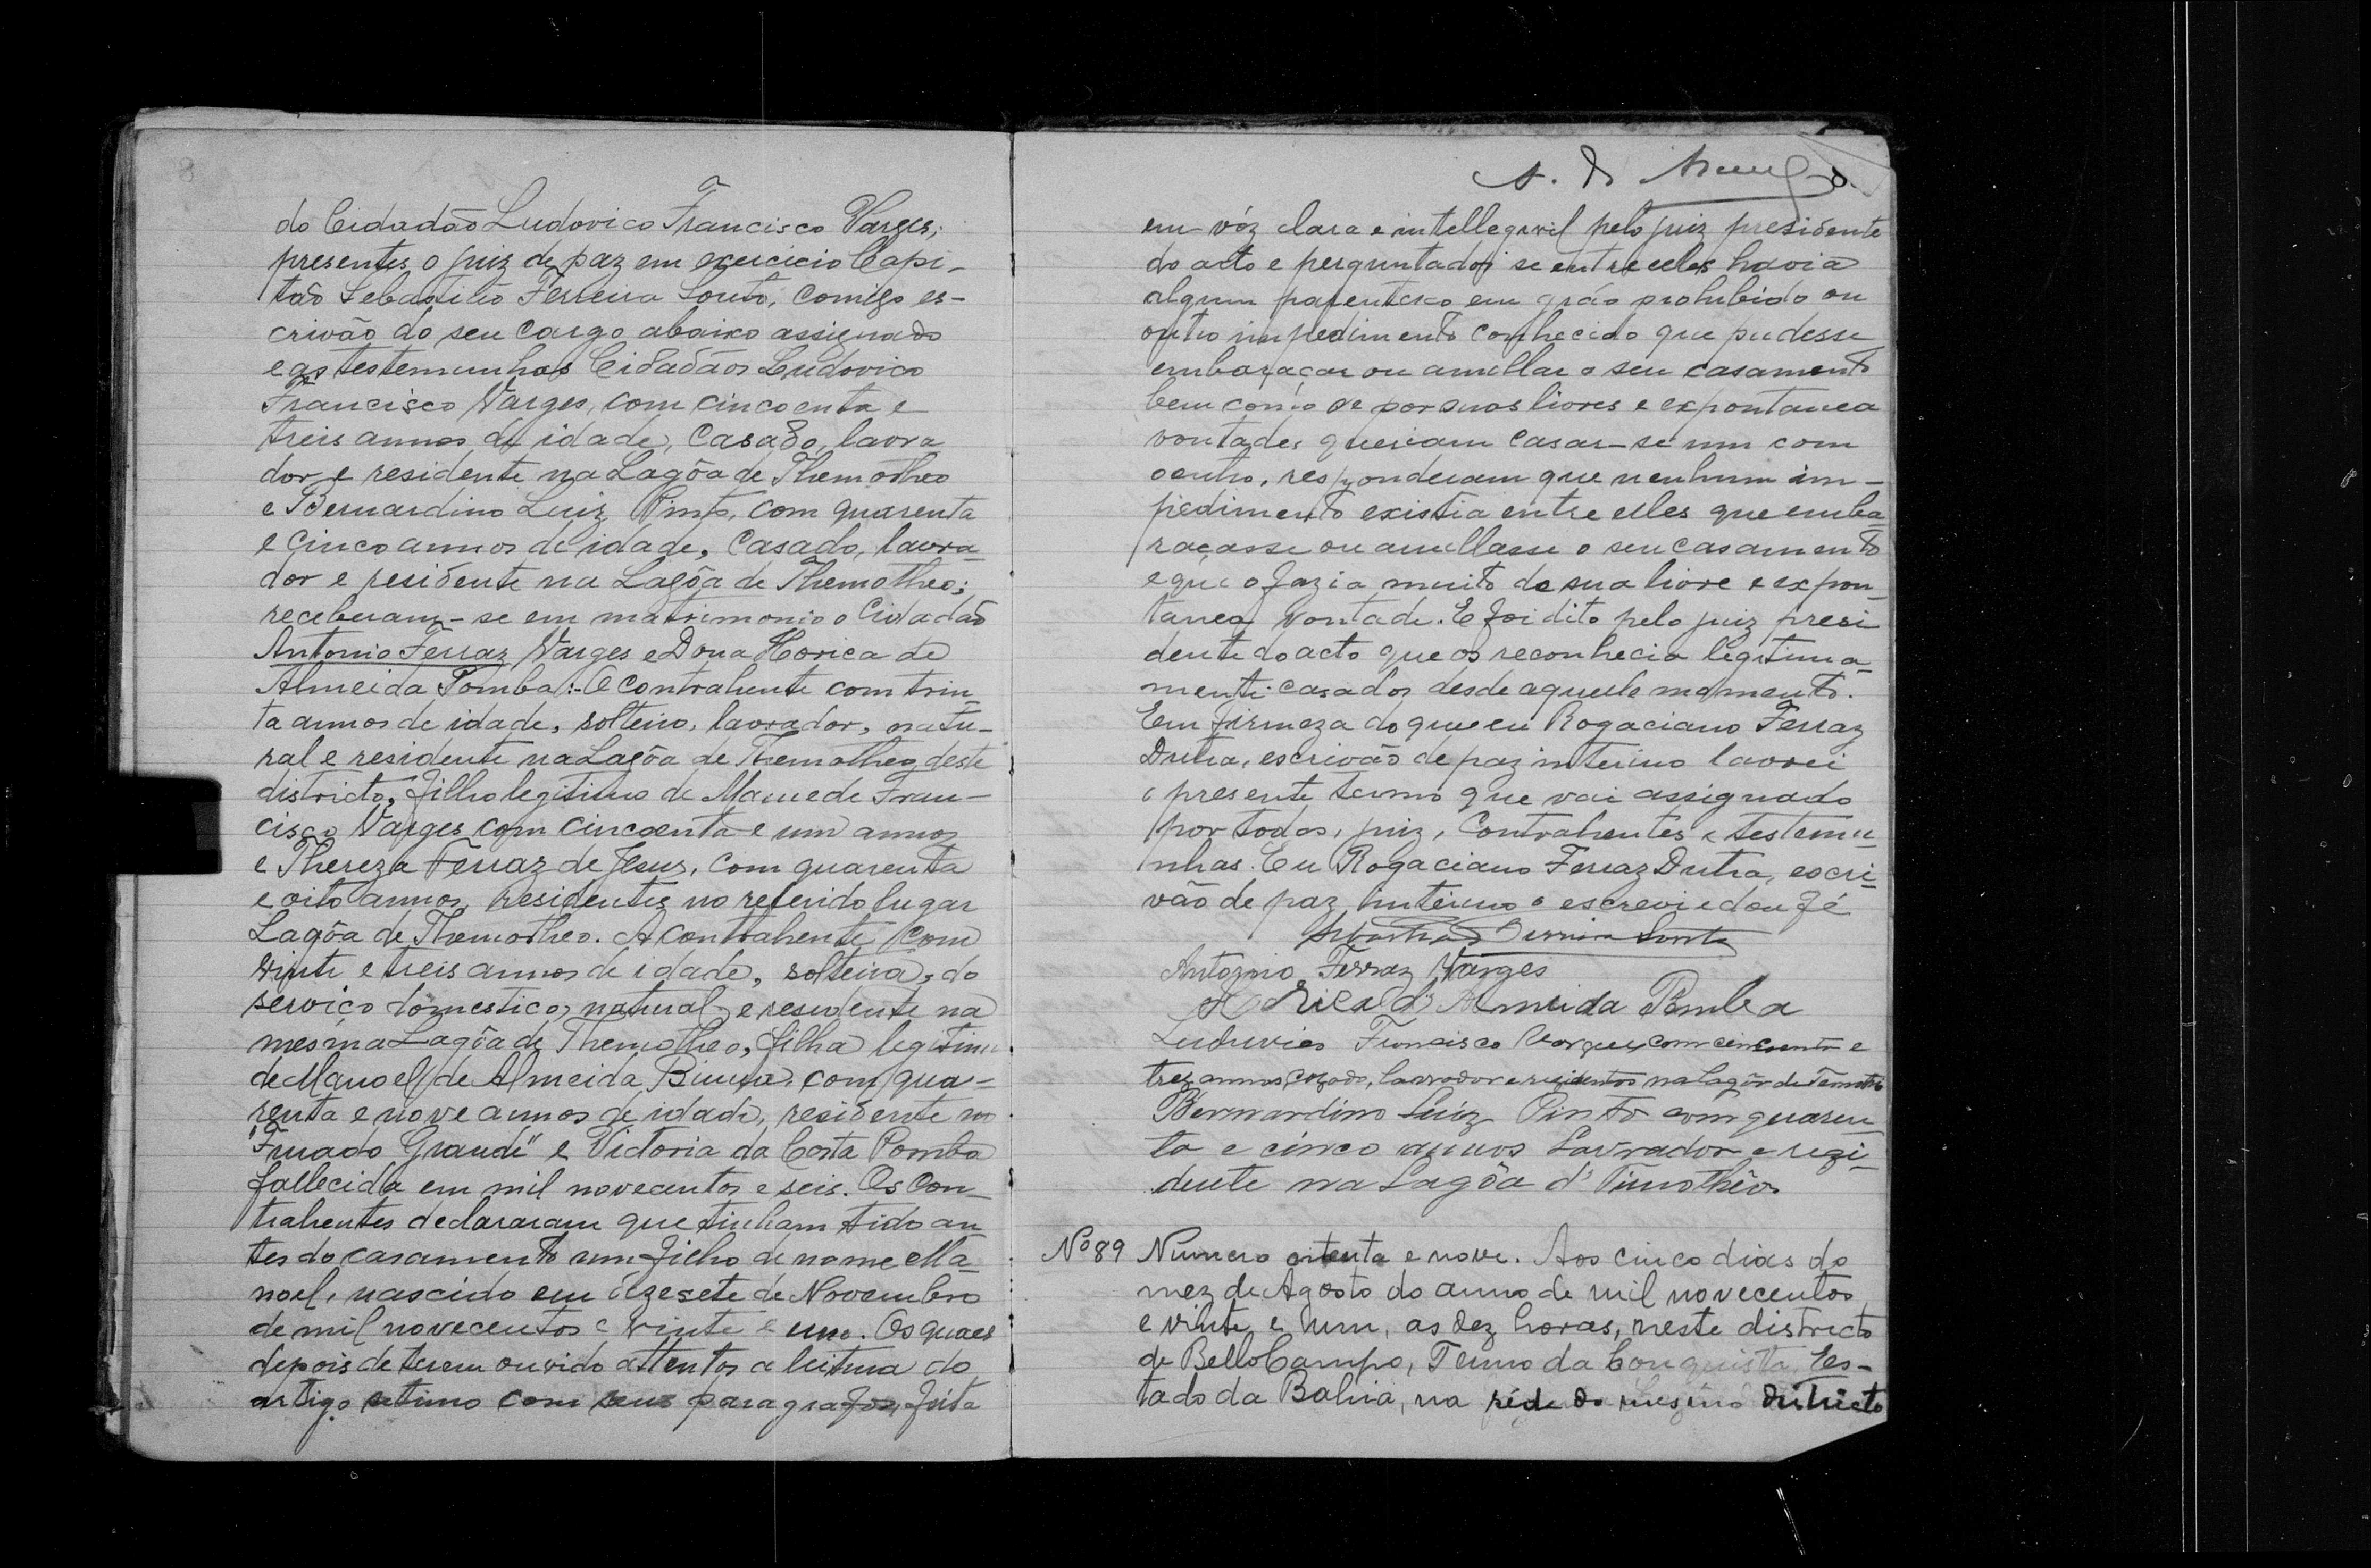 do Cidadão Ludovico Francisco Varges;
presentes o juiz de paz em exercicio Capi-
tão Sebastião Ferreira Souto, comigo es-
crivão do seu cargo abaixo assignado
e as testemunhas Cidadãos Ludovico
Francisco Varges, com cincoenta e
treis annos de idade, casado, lavra
dor e residente na Lagôa de Themotheo
e Bernardino Luiz Pinto, com quarenta
e cinco annos de idade, casado, lavra-
dor e residente na Lagôa de Themotheo;
receberam-se em matrimonio o Cidadão
Antonio Ferraz Varges e Dona Horica de
Almeida Pomba:- O contrahente com trin-
ta annos de idade, solteiro, lavrador, natu-
ral e residente na Lagôa de Themotheo deste
districto, filho legitimo de Mamede Fran-
cisco Varges com cincoenta e um annos
e Thereza Ferraz de Jesus, com quarenta
e oito annos, residentes no referido lugar
Lagôa de Themotheo. A contrahente com
vinte e treis annos de idade, solteira, do
serviço domestico, natural e residente na
mesma Lagôa de Themotheo, filha legitima
de Manoel de Almeida com qua-
renta e nove annos de idade, residente no
Grande" e Victoria da Costa Pomba
fallecida em mil novecentos e seis. Os con-
trahentes declararam que tinham tido an
tes do casamento um filho de nome Ma-
noel, nascido em dezesete de Novembro
de mil novecentos e vinte e um. Os quaes
depois de terem ouvido attentos a leitura do
artigo setimo com seus paragrafos, feita
8.
em vóz clara e intellegivel pelo juiz presidente
do acto e perguntados se entre elles havia
algum parentesco em gráo prohibido ou
outro impedimento conhecido que pudesse
embaraçar ou anullar o seu casamento
bem como se por suas livres e expontanea
vontades queriam casar-se um com
outro, responderam que nenhum im-
pedimento existia entre elles que emba-
raçasse ou anullasse o seu casamento
e que o fazia muito de sua livre e expon-
tanea vontade. E foi dito pelo juiz presi
dente do acto que os reconhecia legitima-
mente casados desde aquelle momento.
Em firmeza do que eu Rogaciano Ferraz
Dutra, escrivão de paz interino lavrei
o presente termo que vai assignado
por todos, juiz, contrahentes e testemu-
nhas. Eu Rogaciano Ferraz Dutra, escri-
vão de paz interino o escrevi e dou fé
Sebastião Ferreira Souto
Antonio Ferraz Varges
Horica d' Almeida Pomba
Luduvico Francisco Varges com cincoenta e
trez annos cazado, lavrador e rezidentes na Lagôa de
Bernardino Luiz Pinto com quaren
ta e cinco annos Lavrador e rezi-
dente na Lagôa d' Timothêo
Nº 89 Numero oitenta e nove. Aos cinco dias do
mez de Agosto do anno de mil novecentos
e vinte e hum, as dez horas, neste districto
de Bello Campo, Termo da Conquista, Es-
tado da Bahia, na séde do mesmo districto